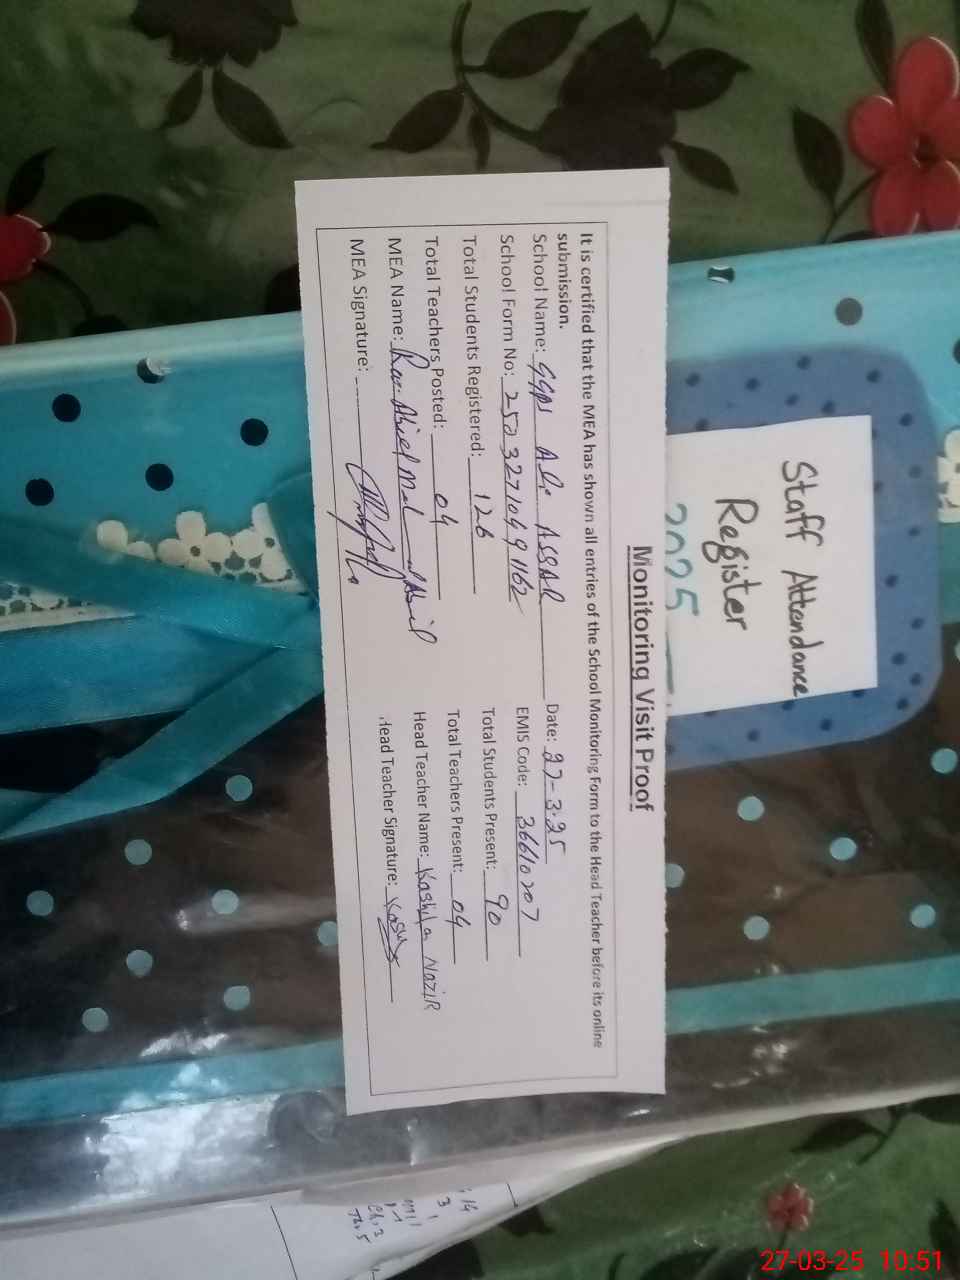 Staff Attendance
Register
2025
Monitoring Visit Proof
It is certified that the MEA has shown all entries of the School Monitoring Form to the Head Teacher before its online
submission.
School Name: GGPS Ali ASSAR Date: 27-3-25
School Form No: EMIS Code: 36610207
Total Students Registered: 126 Total Students Present: 90
Total Teachers Posted: 04 Total Teachers Present: 04
MEA Name: Head Teacher Name: NaziR
MEA Signature: Head Teacher Signature:
27-03-25 10:51